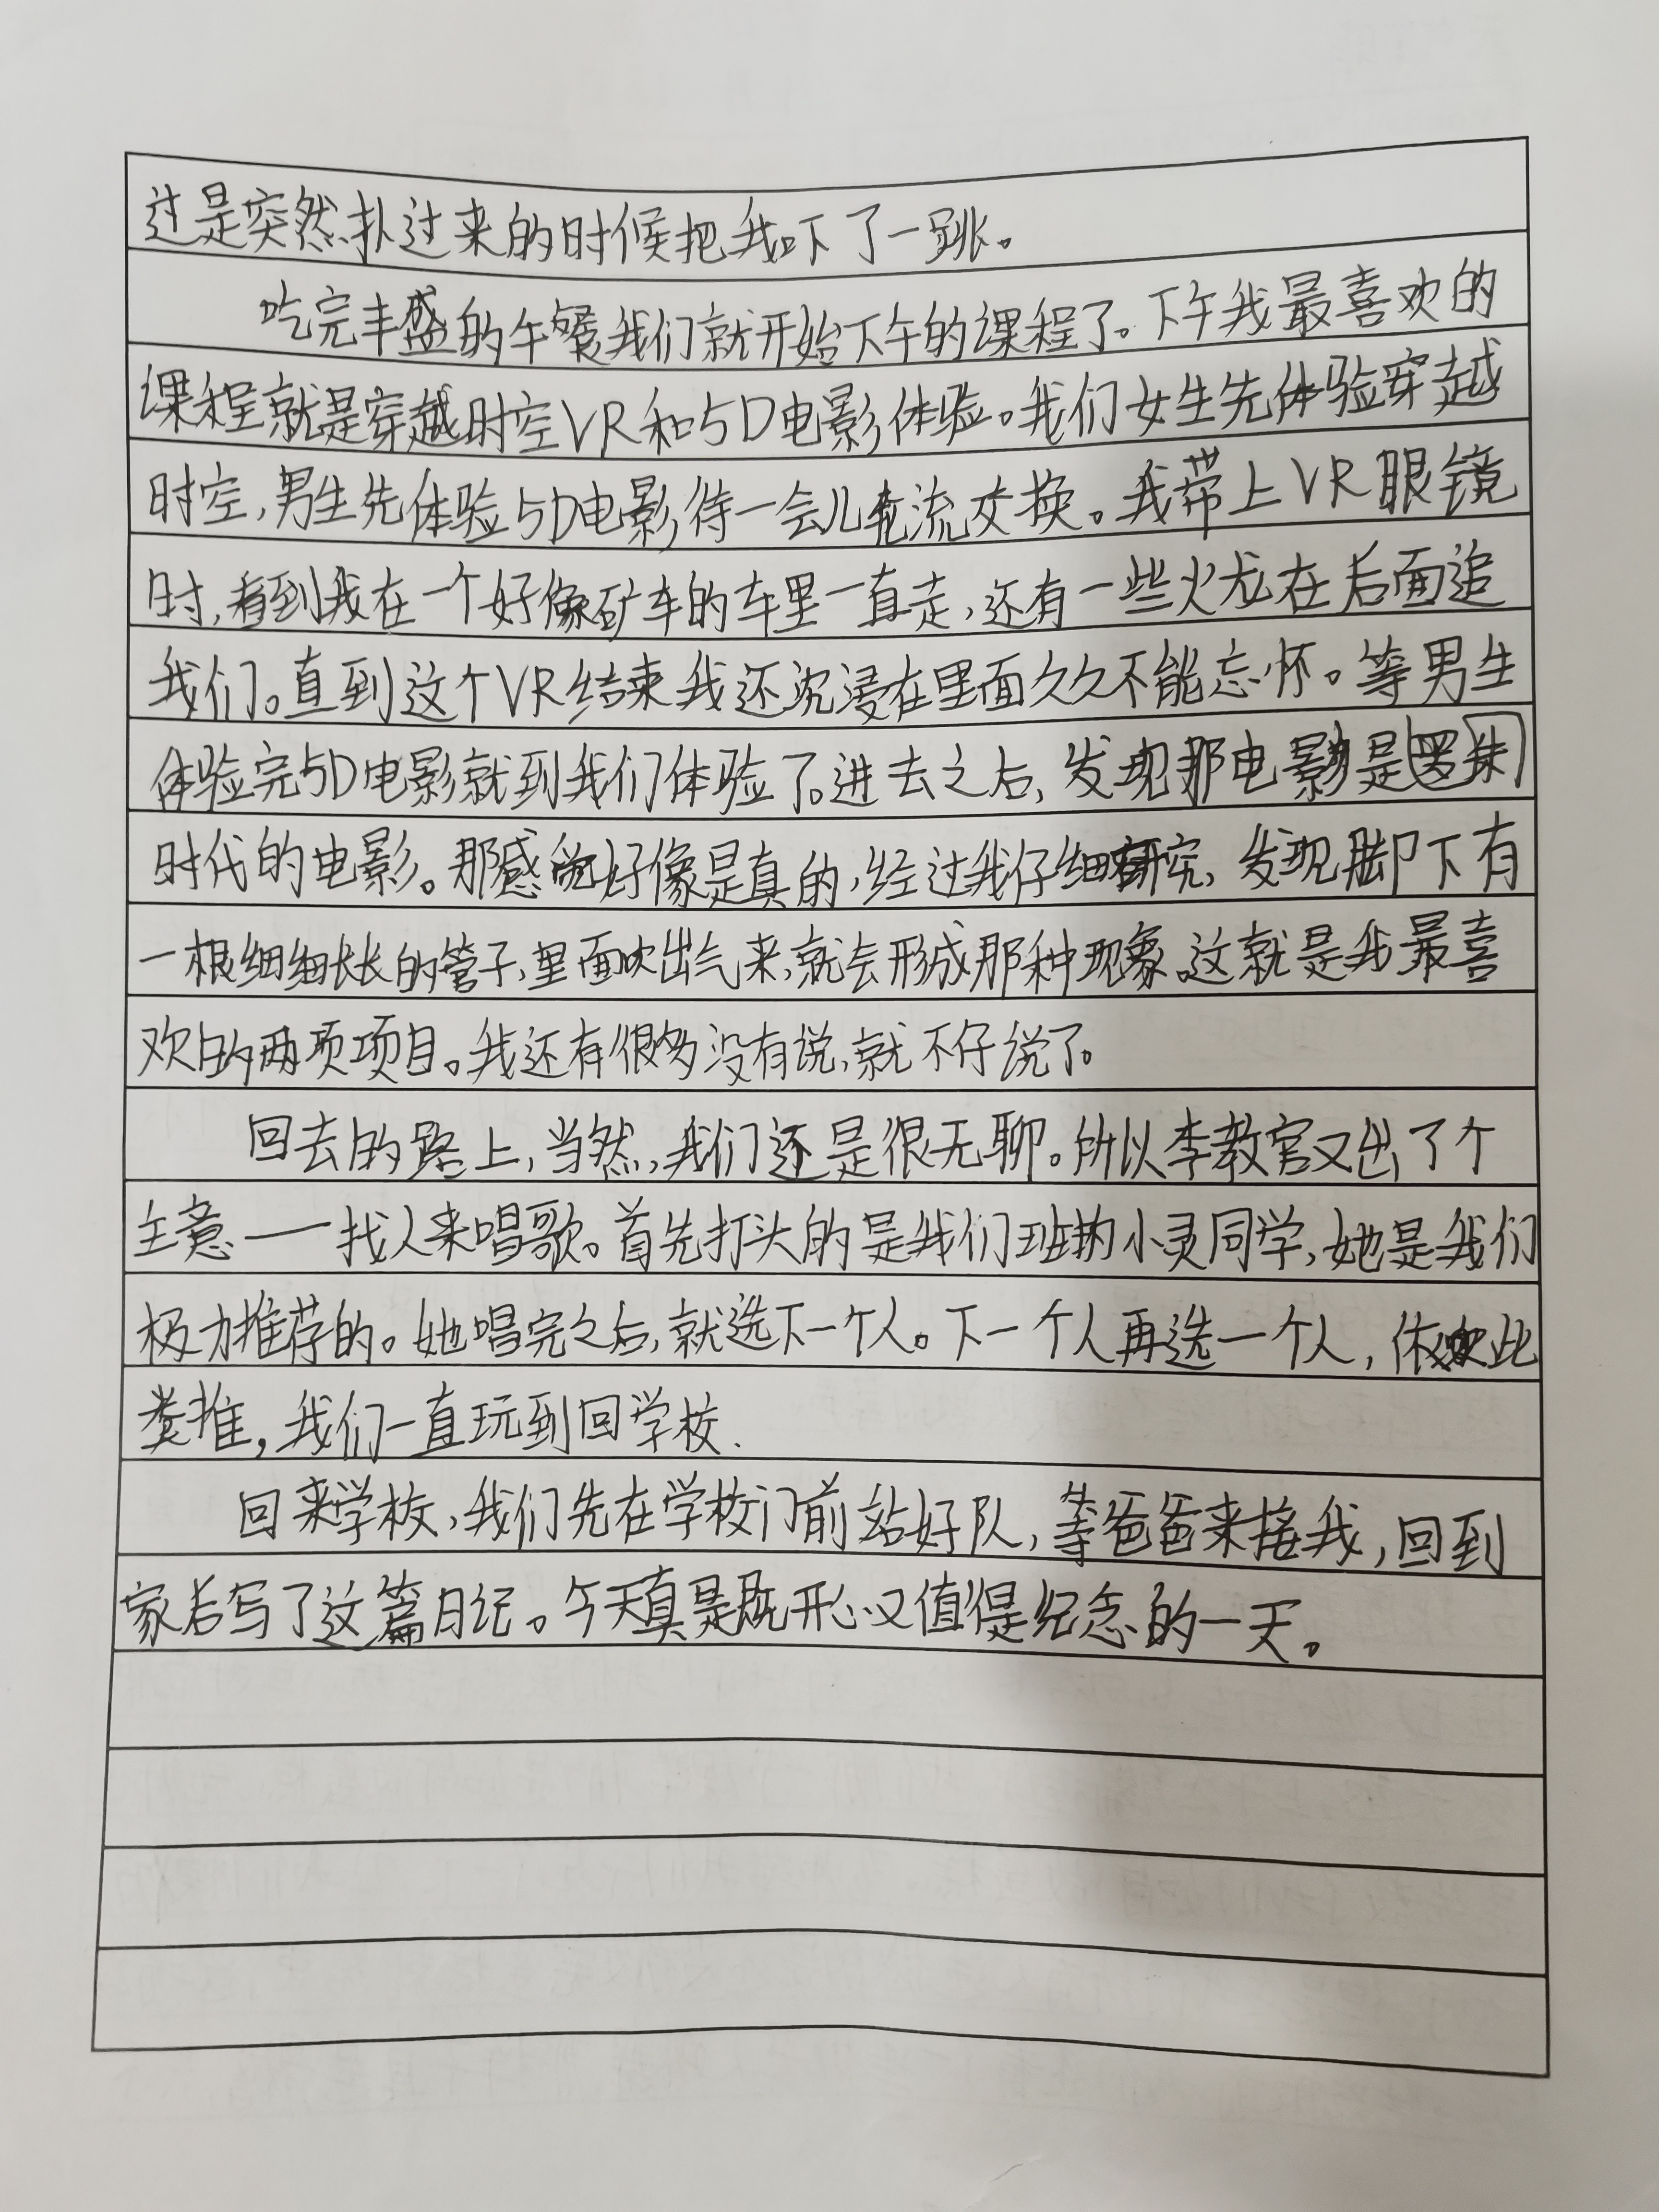 过是突然扑过来的时候把我吓了一跳。
吃完丰盛的午餐我们就开始下午的课程了。下午我最喜欢的
课程就是穿越时空VR和5D电影体验。我们女生先体验穿越
时空,男生先体验5D电影,待一会儿轮流交换。我带上VR眼镜
时,看到我在一个好像矿车的车里一直走,还有一些火龙在后面追
我们。直到这个VR结束我还沉浸在里面久久不能忘怀。等男生
体验完5D电影就到我们体验了。进去之后,发现那电影是
时代的电影。那感觉好像是真的,经过我仔细研究,发现脚下有
一根细细长长的管子,里面吹出气来,就会形成那种现象。这就是我最喜
欢的两项项目。我还有很多没有说,就不仔说了。
回去的路上,当然,我们还是很无聊。所以李教官又出了个
主意——找人来唱歌。首先打头的是我们班的小灵同学,她是我们
极力推荐的。她唱完之后,就选下一个人。下一个人再选一个人,依次此
类推,我们一直玩到回学校.
回来学校,我们先在学校门前站好队,等爸爸来接我,回到
家后写了这篇日记。今天真是既开心又值得纪念的一天。